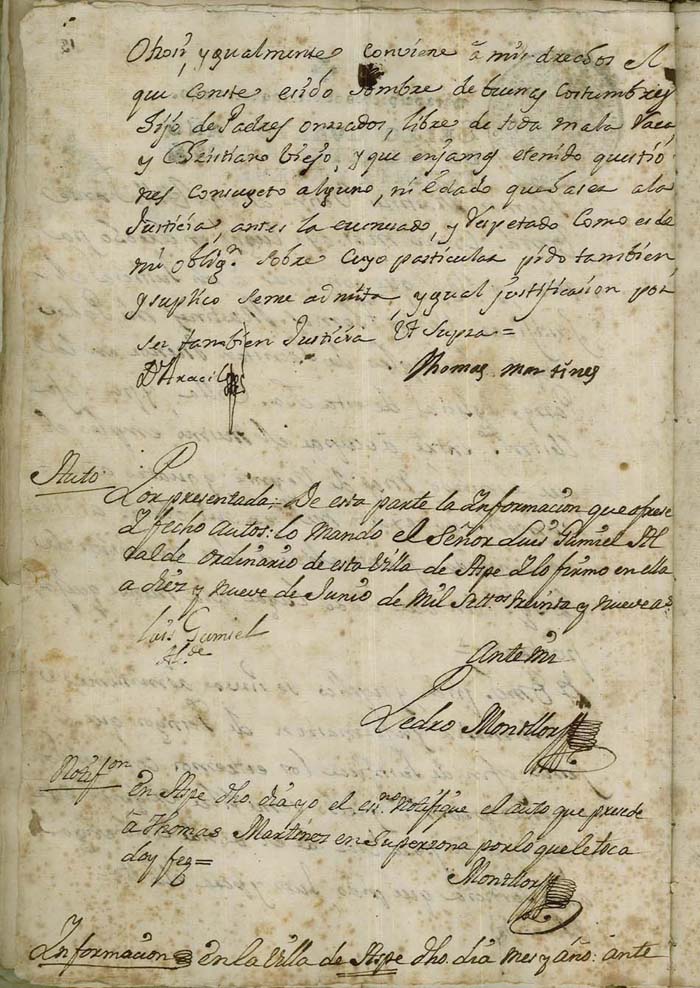 Otrosi, y gualmente conviene â mis drechos el
que conste esido hombre de buenas costumbres
hijo de Padres onrrados, libre de toda mala Raca
y Christiano Viejo, y que enjamas etenido questio
nes consugeto alguno, ni êdado que haser ala
Justicia, antes la eucusado, y Respetado como es de
mi oblign. sobre cuyo particular pido tambien
y suplico seme admita, ygual justificasion por
ser tambien Justicia Ut Supra=
Dr. Aracil
Thomas martines
Auto
Por presentada; De esta parte la Informacion que ofrese
I fecho Autos: lo Mando el Señor Luis Gumiel Al
calde ordinario de esta Villa de Aspe I lo firmo en ella
a diez y nueve de Junio de Mil Settos treinta y nueve as.
Luis Gumiel
Alde
Ante mi
Pedro Montllor
Notifon
En Aspe dho. dia yo el esno. notifique el auto que presede
â Thomas Martines en su persona por lo que le toca
doy fee=
Montllor
Informacion En la Villa de Aspe dho. dia mes y año: ante